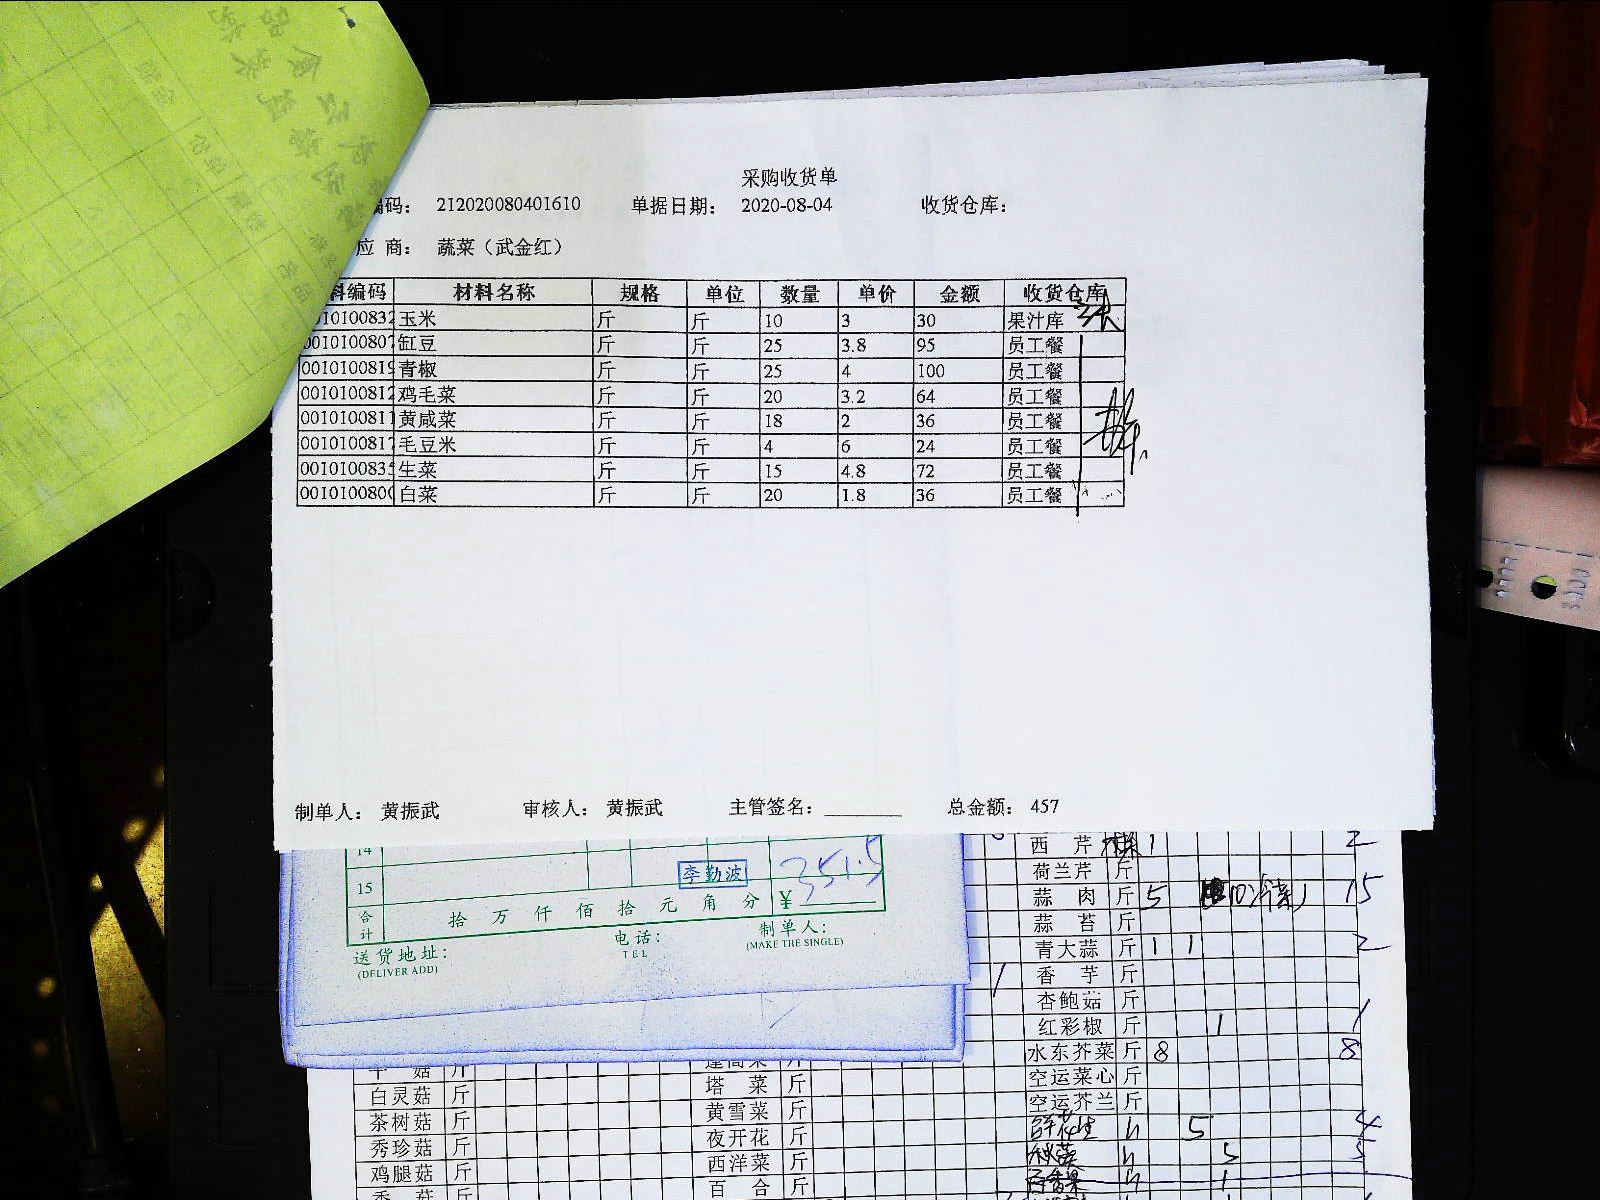 采购收货单
编码： 212020080401610 单据日期： 2020-08-04 收货仓库：
应 商： 蔬菜（武金红）
料编码 材料名称 规格 单位 数量 单价 金额 收货仓库
0010100832 玉米 斤 斤 10 3 30 果汁库
0010100807 缸豆 斤 斤 25 3.8 95 员工餐
0010100819 青椒 斤 斤 25 4 100 员工餐
0010100812 鸡毛菜 斤 斤 20 3.2 64 员工餐
0010100811 黄咸菜 斤 斤 18 2 36 员工餐
0010100817 毛豆米 斤 斤 4 6 24 员工餐
0010100835 生菜 斤 斤 15 4.8 72 员工餐
0010100800 白菜 斤 斤 20 1.8 36 员工餐
制单人： 黄振武 审核人： 黄振武 主管签名： 总金额： 457
14
15 李勤波
合计 拾 万 仟 佰 拾 元 角 分 ¥ 351.5
送货地址： 电话： 制单人：
(DELIVER ADD) TEL (MAKE THE SINGLE)
西 芹 1 2
荷兰芹 斤
蒜 肉 斤 5 15
蒜 苔 斤
青大蒜 斤 1 1 2
香 芋 斤
杏鲍菇 斤
红彩椒 斤 1 1
水东芥菜 斤 8 8
空运菜心 斤
空运芥兰 斤
5
秋葵 5 5
百香果 1
白灵菇 斤
茶树菇 斤
秀珍菇 斤
鸡腿菇 斤
塔 菜 斤
黄雪菜 斤
夜开花 斤
西洋菜 斤
百 合 斤